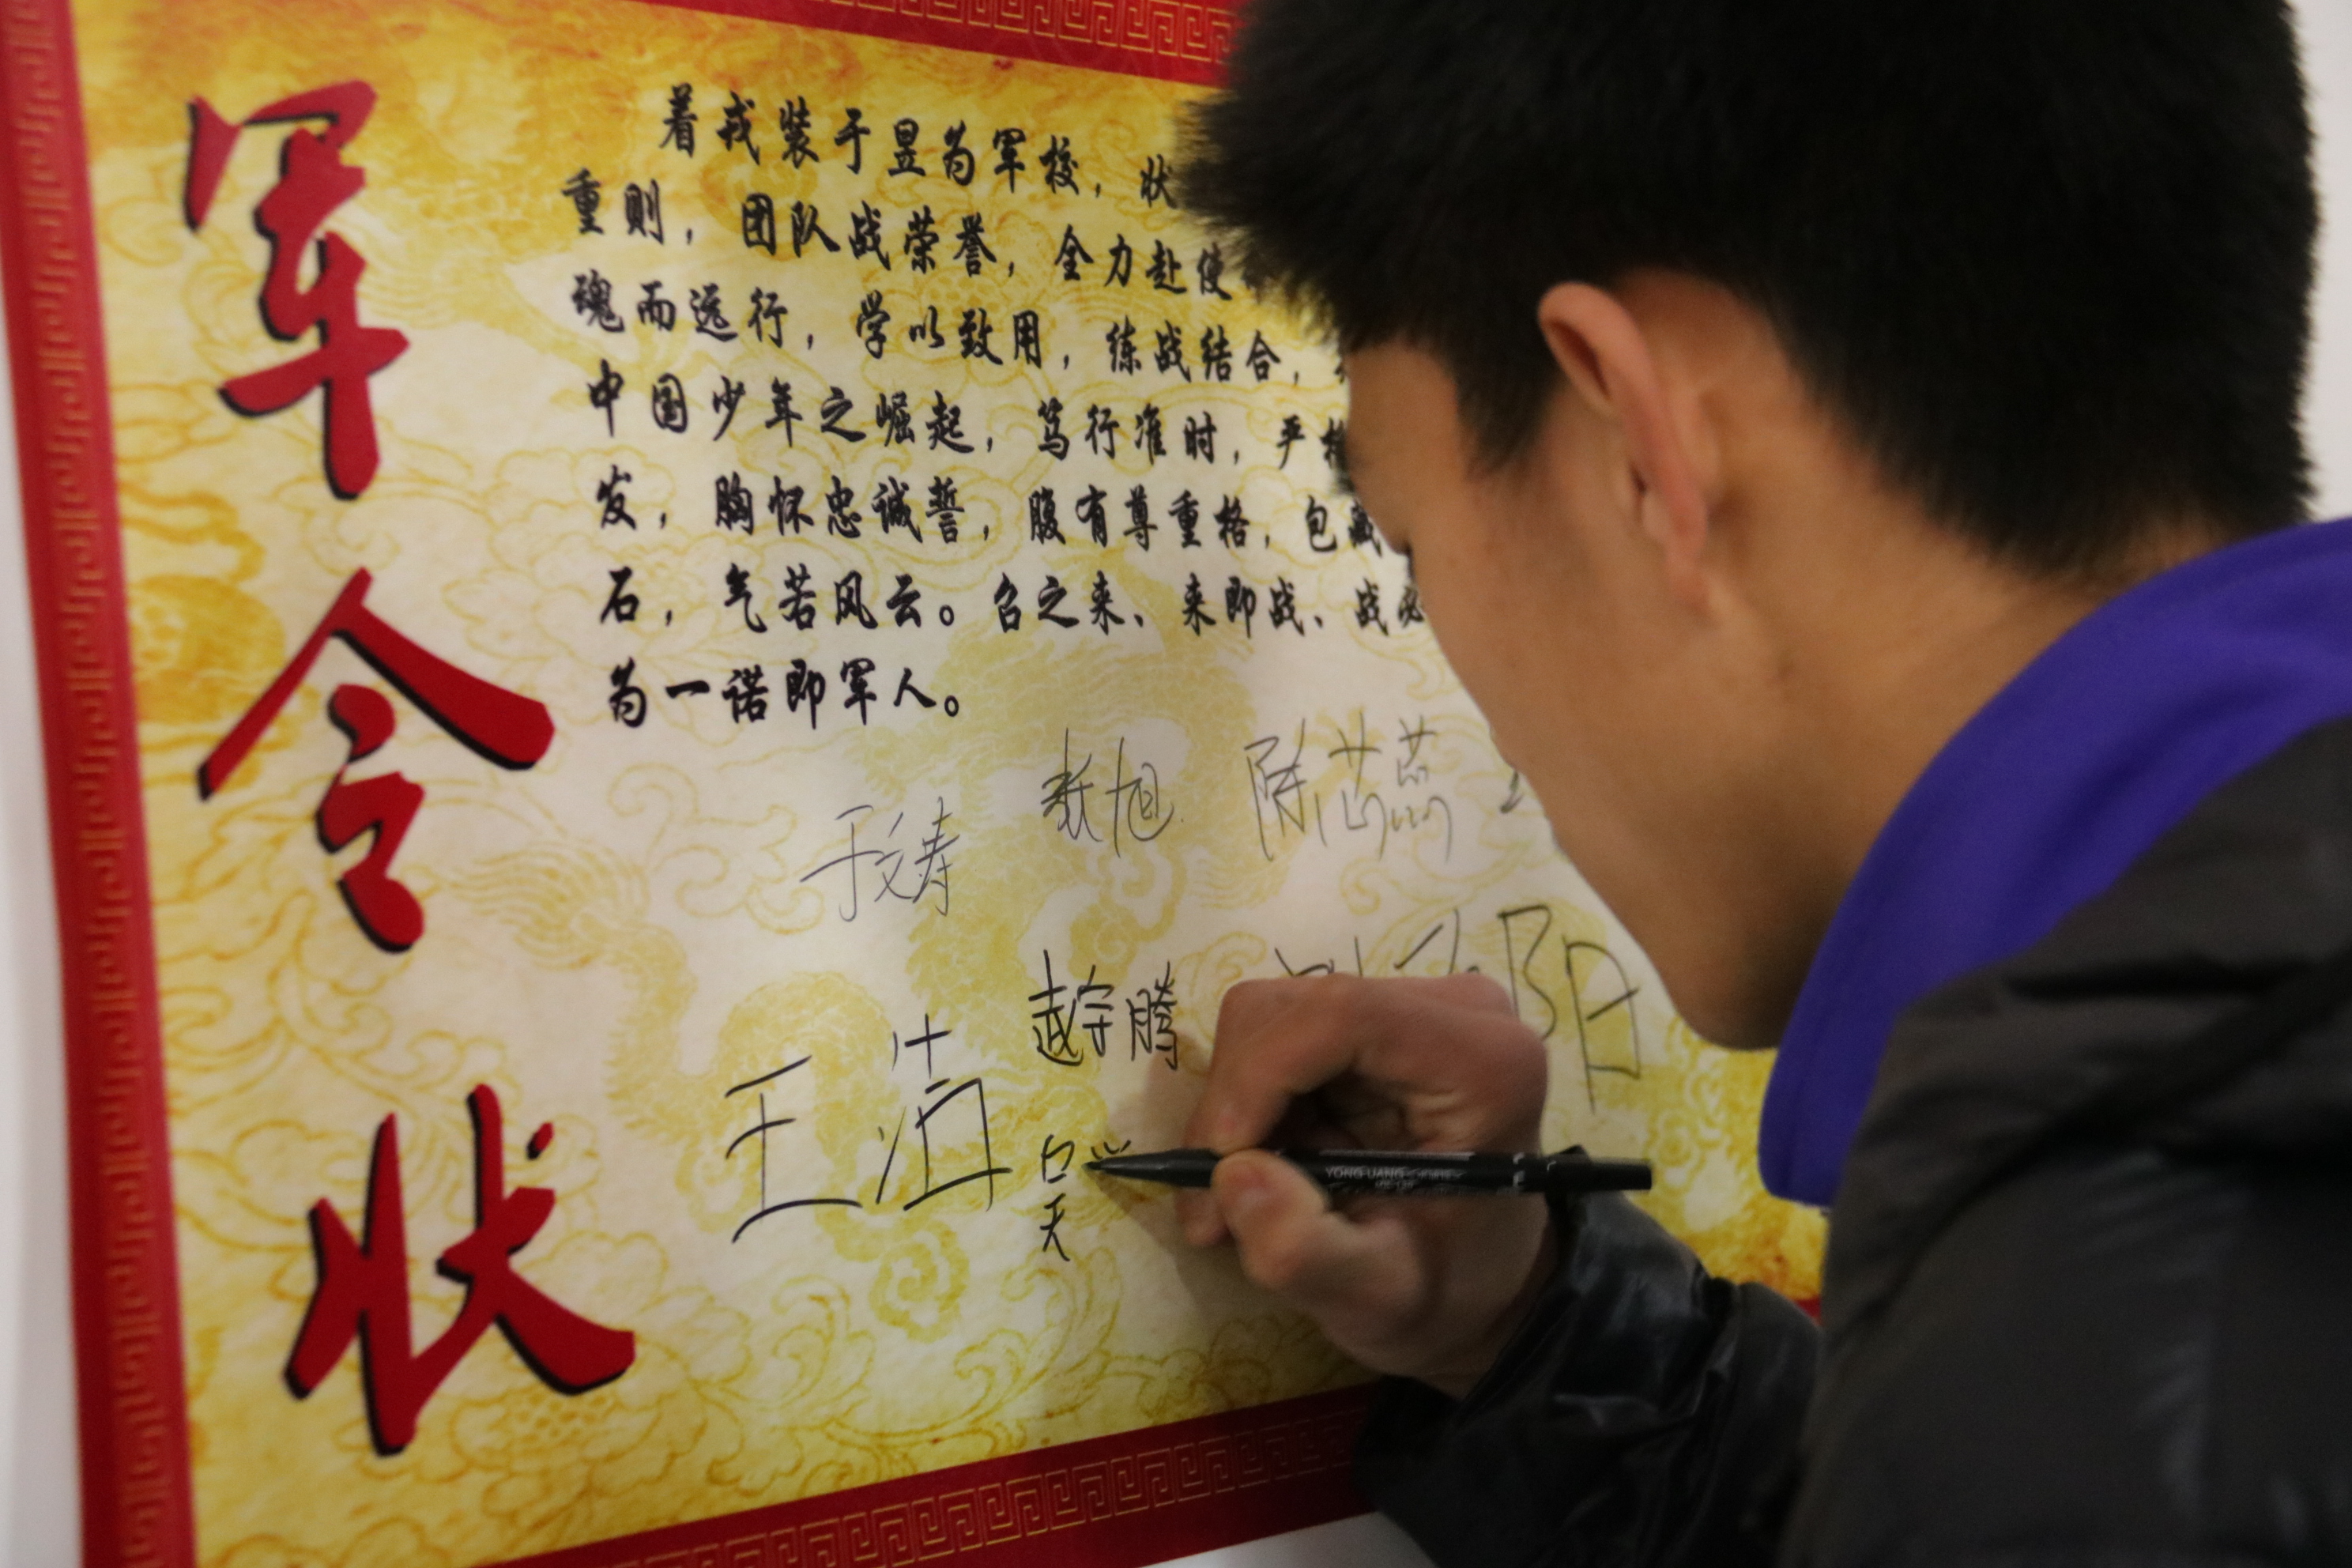 军令状
着戎装于昱为军校，状
重则，团队战荣誉，全力赴使
魂而远行，学以致用，练战结合，
中国少年之崛起，笃行准时，严格
发，胸怀忠诚誓，腹有尊重格，包藏
石，气若风云。召之来、来即战、战必
为一诺即军人。
于文涛
张旭
陈芯蕊
赵宇腾
阳
王洁